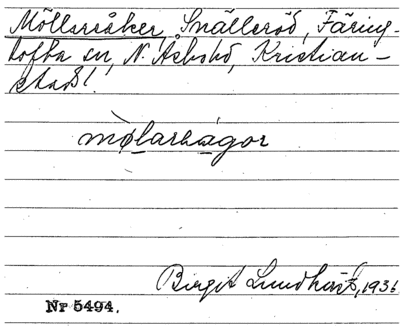 Möllareåker, Snälleröd, Färing-
tofta sn, N. Åsbohd, Kristian-
stad l.
mølarhågor
Birgit Lundkvist, 1936
Nr 5494.